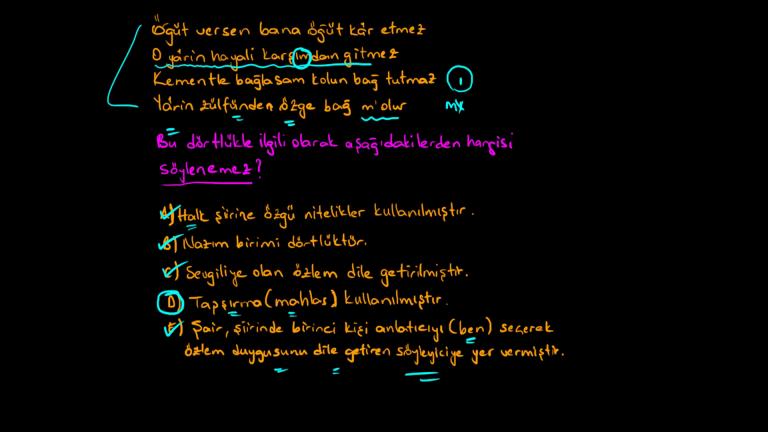 Öğüt versen bana öğüt kâr etmez
O yârin hayali karşımdan gitmez
Kementle bağlasam kolun bağ tutmaz 1
Yârin zülfünden özge bağ m'olur
Bu dörtlükle ilgili olarak aşağıdakilerden hangisi
söylenemez?
A) Halk şiirine özgü nitelikler kullanılmıştır.
B) Nazım birimi dörtlüktür.
C) Sevgiliye olan özlem dile getirilmiştir.
D) Tapşırma (mahlas) kullanılmıştır.
E) Şair, şiirinde birinci kişi anlatıcıyı (ben) seçerek
özlem duygusunu dile getiren söyleyiciye yer vermiştir.